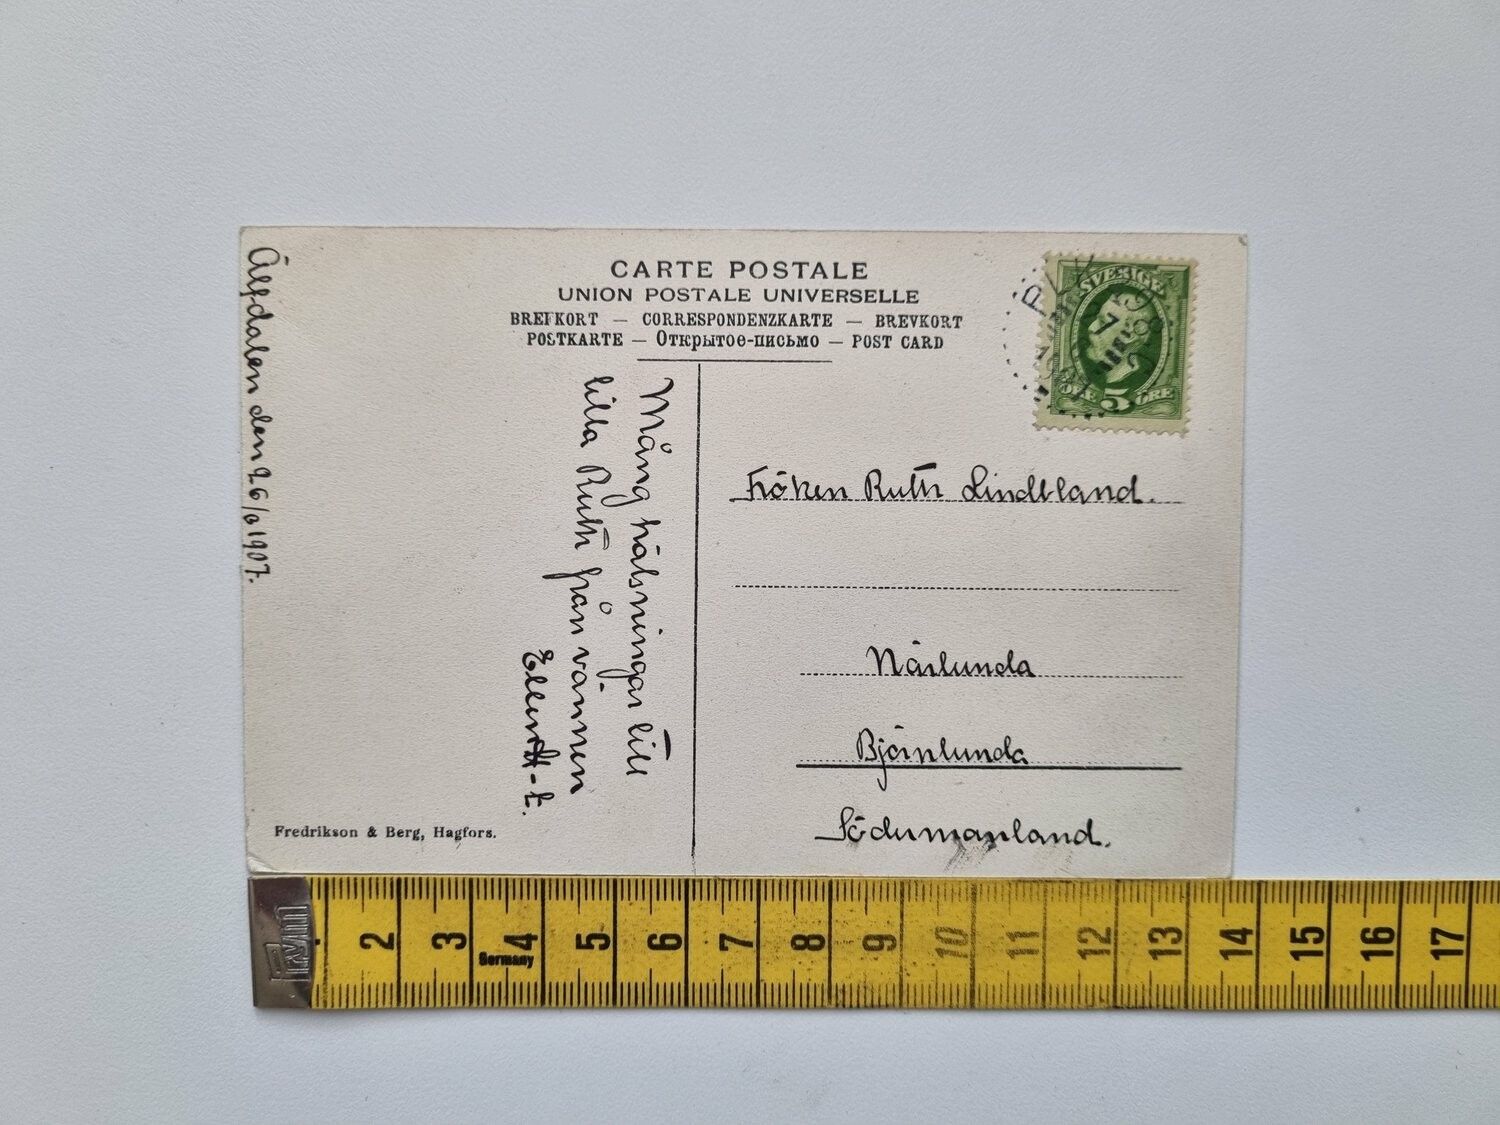 CARTE POSTALE
UNION POSTALE UNIVERSELLE
BREFKORT — CORRESPONDENZKARTE — BREVKORT
POSTKARTE — Открытое-письмо — POST CARD
SVERIGE
5
ÖRE
1907
Älfdalen den 26/6 1907.
Mång hälsningar till
lilla Ruth från vännen
Fröken Ruth Lindbland.
Närlunda
Björnlunda
Södermanland.
Fredrikson & Berg, Hagfors.
2 3 4 5 6 7 8 9 10 11 12 13 14 15 16 17
Germany